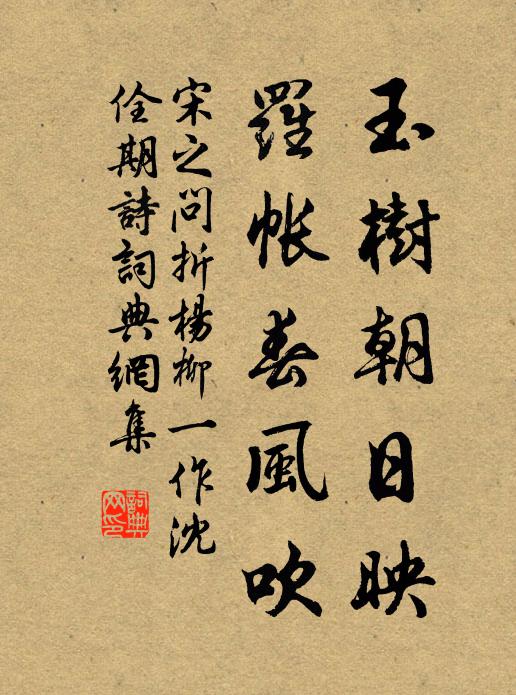 玉樹朝日映
羅帳春風吹
宋之問折楊柳一作沈
佺期詩詞典網集
詞典网印